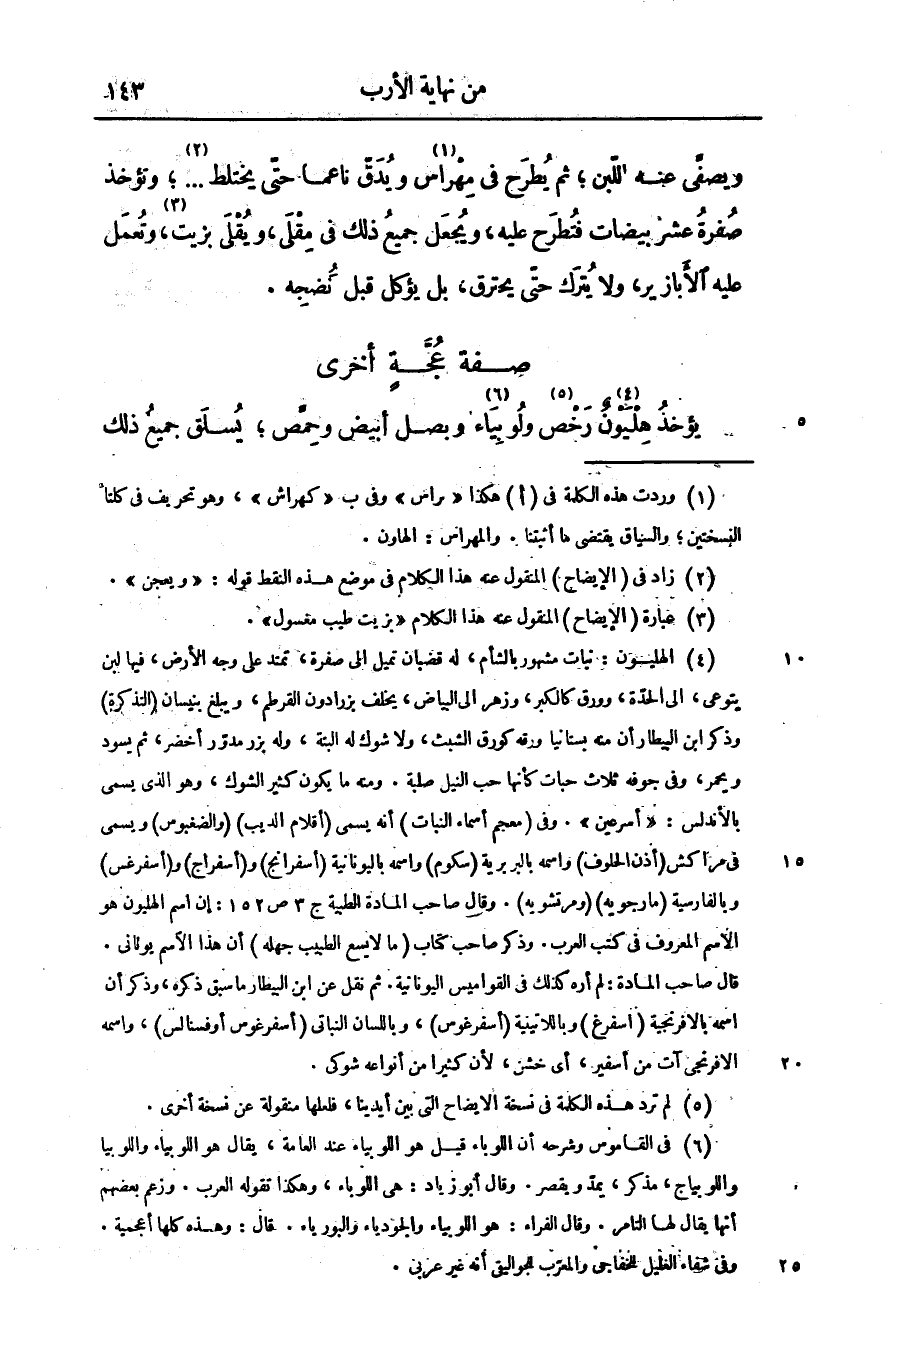 من نهاية الأرب ١٤٣
(١) (٢)
ويصفَّى عنه اللّبن؛ ثم يُطرَح فى مِهْراس ويُدَقّ ناعما حتّى يختلط ...؛ وتؤخذ
(٣)
صُفرةُ عشر بيضات فتُطرَح عليه، ويُجعَل جميعُ ذلك فى مِقْلَى، ويُقْلَى بزيت، وتُعمَل
عليه الأبازير، ولا يُترَك حتّى يحترق، بل يؤكل قبل نُضجِه .
صفة عُجَّةٍ أخرى
(٤) (٥) (٦)
يؤخذُ هِلْيَوْنٌ رَخْص ولُوبِيَاء وبصل أبيض وحِمَّص؛ يُسلَق جميعُ ذلك ٥
(١) وردت هذه الكلمة فى (أ) هكذا « راس » وفى ب « كهراش » ، وهو تحريف فى كلتا
النسختين؛ والسياق يقتضى ما أثبتنا . والمهراس : الهاون .
(٢) زاد فى (الإيضاح) المنقول عنه هذا الكلام فى موضع هذه النقط قوله : « ويعجن » .
(٣) عبارة (الإيضاح) المنقول عنه هذا الكلام «بزيت طيب مغسول» .
(٤) الهليون : نبات مشهور بالشأم، له قضبان تميل الى صفرة، تمتد على وجه الأرض، فيها لبن ١٠
يتوعى، الى الحدّة، وورق كالكبر، وزهر الى البياض، يخلف بزرا دون القرطم، ويبلغ بنيسان (التذكرة)
وذكر ابن البيطار أن منه بستانيا ورقه كورق الشبث، ولا شوك له البتة ، وله بزر مدوّر أخضر، ثم يسود
ويحمر، وفى جوفه ثلاث حبات كأنها حب النيل صلبة . ومنه ما يكون كثير الشوك ، وهو الذى يسمى
بالأندلس : « أسرعين » . وفى (معجم أسماء النبات) أنه يسمى (أقلام الديب) (والضغبوس) ويسمى
فى مراكش (أذن الحلوف) واسمه بالبربرية (سكوم) واسمه باليونانية (أسفرانج) و(أسفراج) و(أسفرغس) ١٥
وبالفارسية (مارجويه) (ومرتشويه) . وقال صاحب المادة الطبية ج ٣ ص ١٥٢ : إن اسم الهليون هو
الاسم المعروف فى كتب العرب. وذكر صاحب كتاب (ما لايسع الطبيب جهله) أن هذا الاسم يونانى .
قال صاحب المادة : لم أره كذلك فى القواميس اليونانية. ثم نقل عن ابن البيطار ما سبق ذكره، وذكر أن
اسمه بالافرنجية (اسفرغ) وباللاتينية (أسفرغوس) ، وباللسان النباتى (أسفرغوس أوفسنالس) ، واسمه
الافرنجى آت من أسفير، أى خشن، لأن كثيرا من أنواعه شوكى . ٢٠
(٥) لم ترد هذه الكلمة فى نسخة الايضاح التى بين أيدينا، فلعلها منقولة عن نسخة أخرى .
(٦) فى القاموس وشرحه أن اللوباء قيل هو اللوبياء عند العامة ، يقال هو اللوبياء واللوبيا
واللوبياج، مذكر، يمدّ ويقصر. وقال أبو زياد : هى اللوباء ، وهكذا تقوله العرب . وزعم بعضهم
أنها يقال لها الثامر . وقال الفراء : هو اللوبياء والجودياء والبورياء . قال : وهذه كلها أعجمية .
وفى شفاء الغليل للخفاجى والمعرّب للجواليقى أنه غير عربى . ٢٥